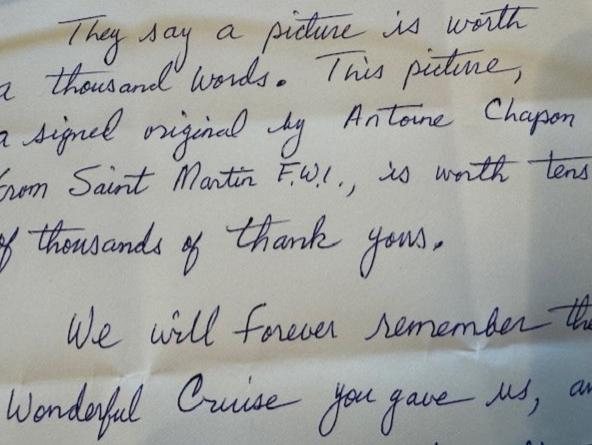 They say a picture is worth
a thousand words. This picture,
a signed original by Antoine Chapon
from Saint Martin F.W.I., is worth tens
of thousands of thank yous.
We will forever remember the
Wonderful Cruise you gave us, an